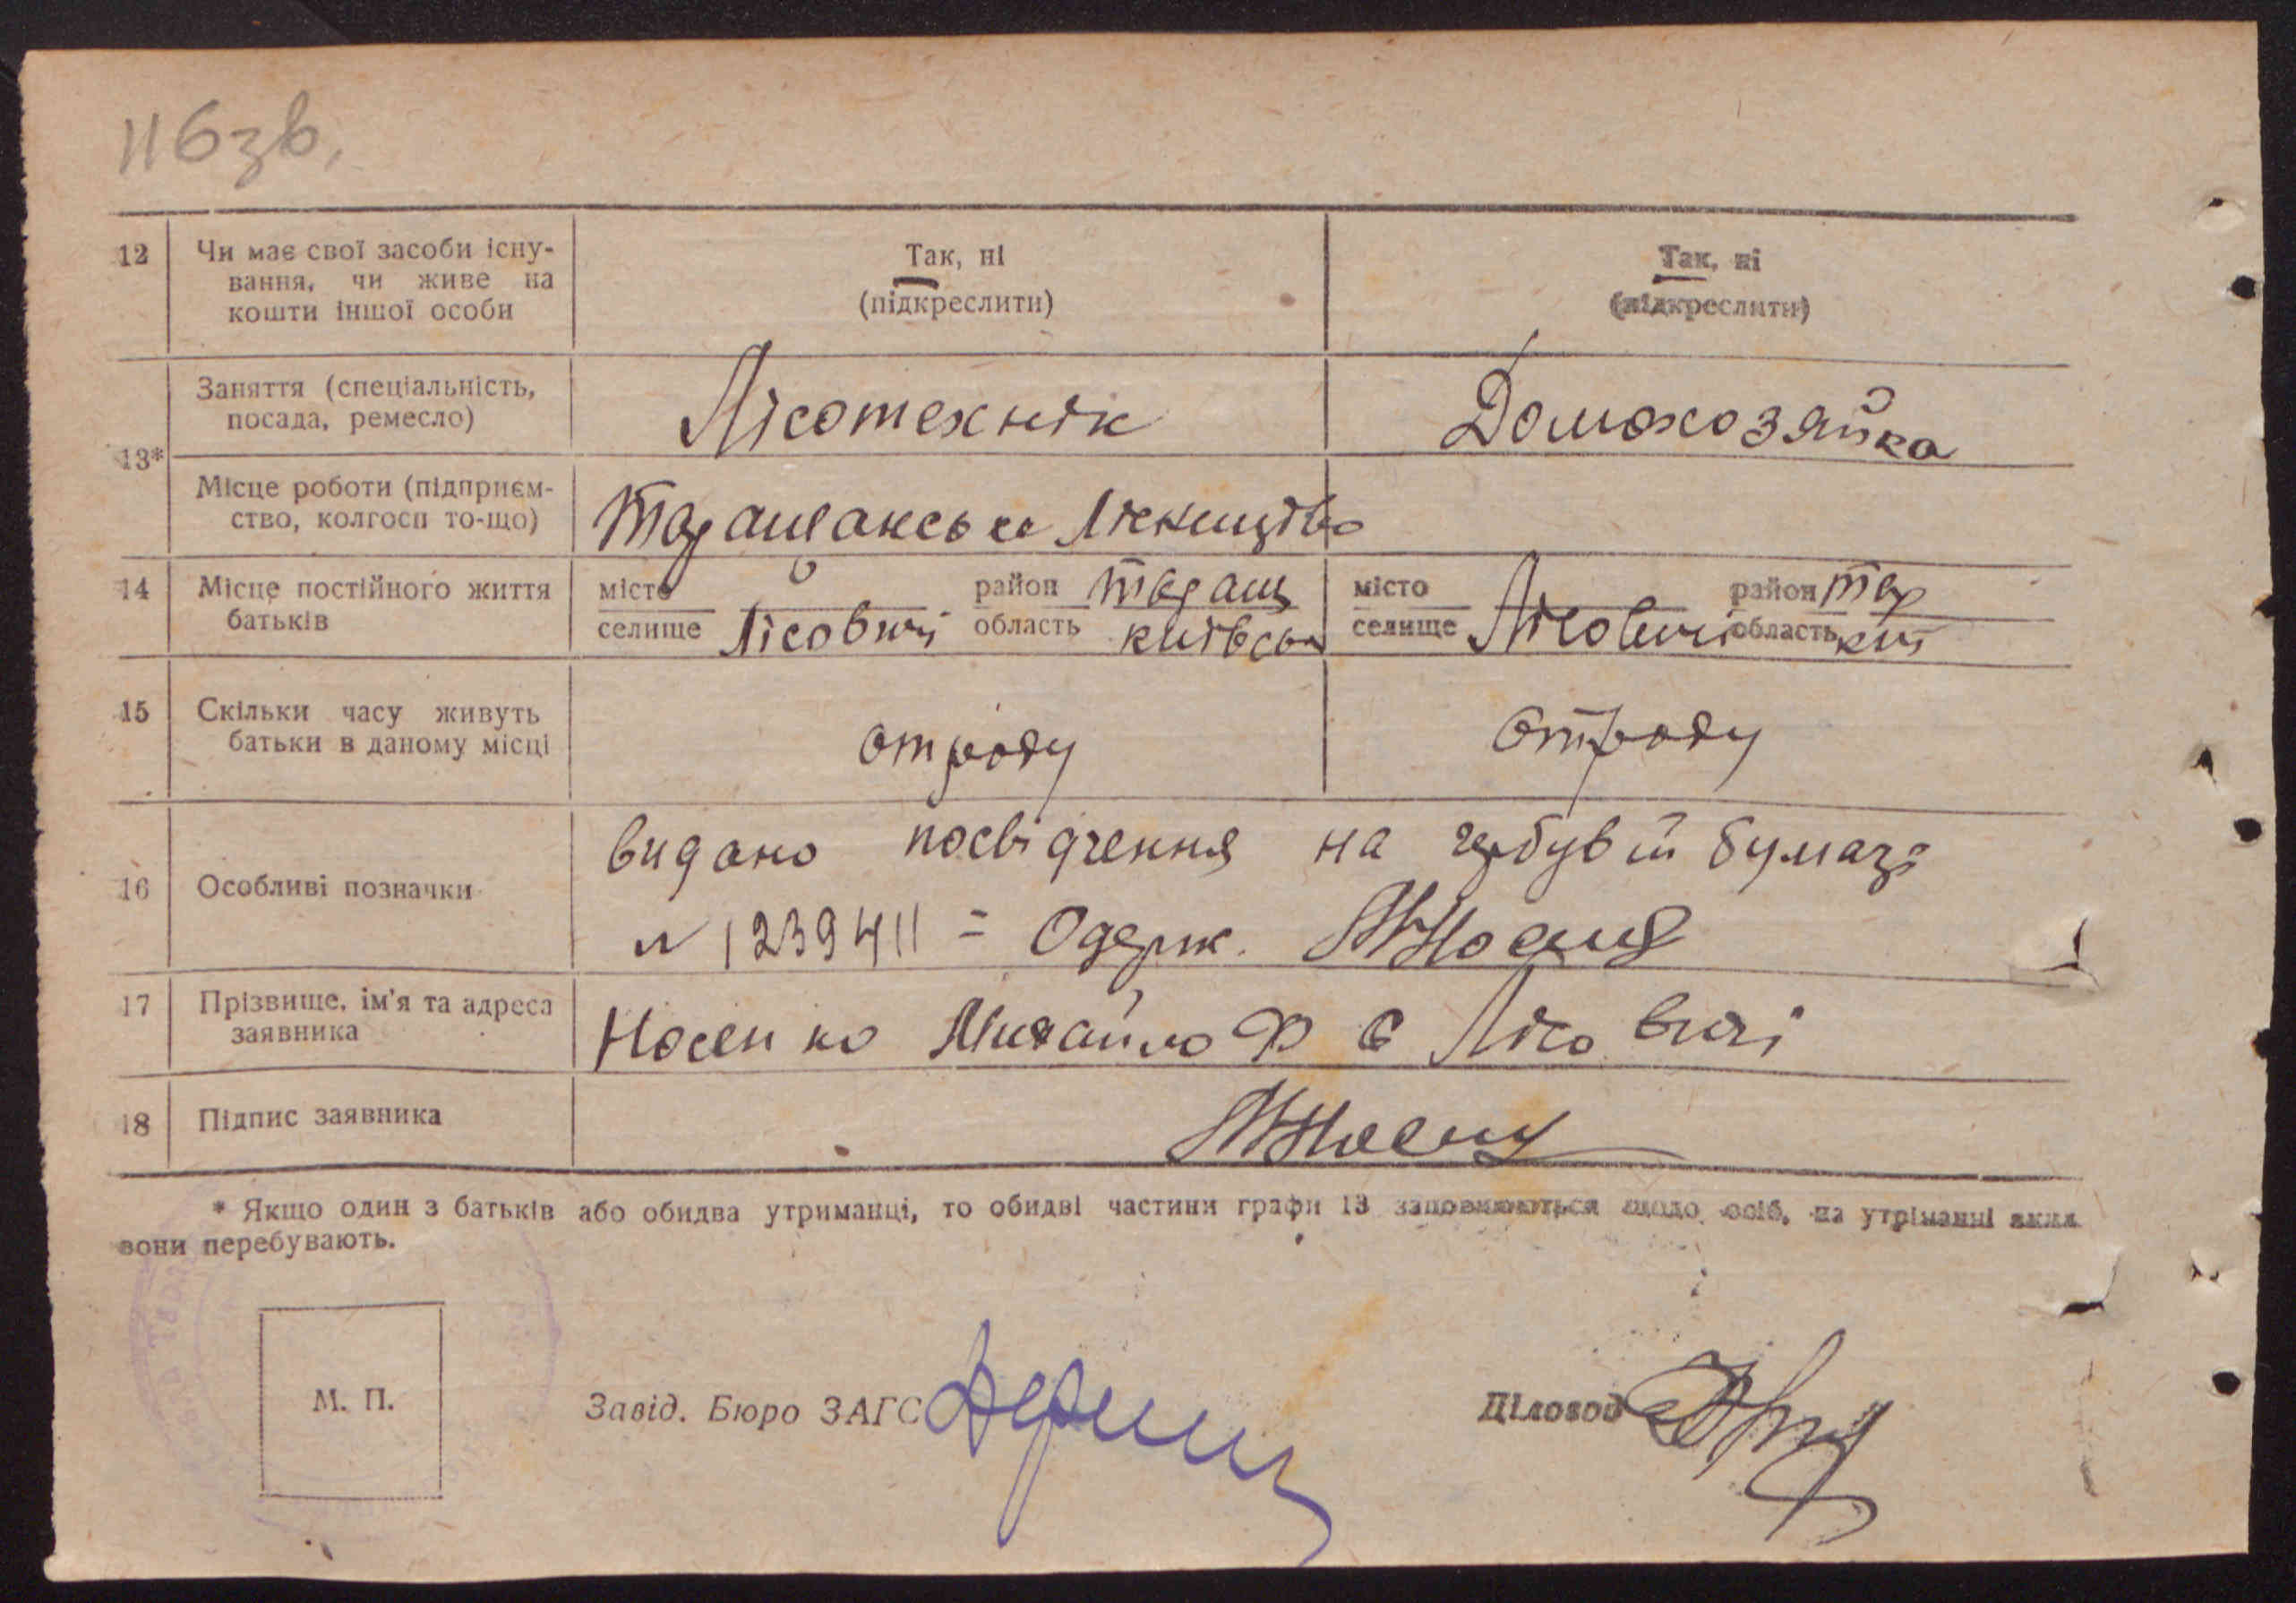 116зв.
12 Чи має свої засоби існу-
вання, чи живе на
кошти іншої особи
Так, ні
(підкреслити)
Так, ні
(підкреслити)
13*
Заняття (спеціальність,
посада, ремесло)
Лісотехнік
Домохозяйка
Місце роботи (підприєм-
ство, колгосп то-що)
Таращанське Лісництво
14 Місце постійного життя
батьків
місто
селище Лісовичі
район Таращ
область Київська
місто
селище Лісовичі
район Тар
область Киї
15 Скільки часу живуть
батьки в даному місці
отроду
отроду
16 Особливі позначки
видано посвідчення на гербувій бумазі
№ 1239411 = Одерж.
17 Прізвище, ім'я та адреса
заявника
Носенко Михайло Ф с Лісовичі
18 Підпис заявника
* Якщо один з батьків або обидва утриманці, то обидві частини графи 13 заповнюються щодо осіб, на утриманні яких
вони перебувають.
М. П.
Завід. Бюро ЗАГС
Діловод